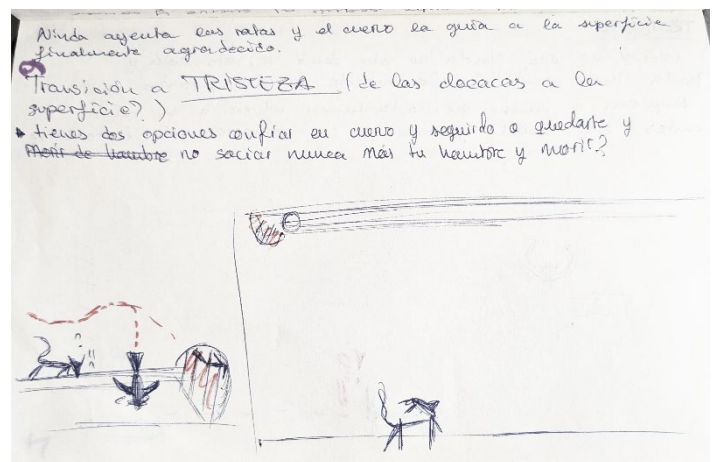 Ninda ayenta las ratas y el cuervo la guía a la superficie
finalmente agradecido.
Transición a TRISTEZA (de las cloacas a la
superficie?)
tienes dos opciones confiar en cuervo y seguirlo o quedarte y
morir de hambre no saciar nunca más tu hambre y morir?